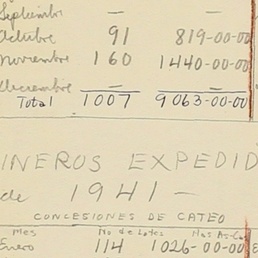 Septiembre — —
Octubre 91 819-00-00
Noviembre 160 1440-00-00
Diciembre — —
Total 1007 9063-00-00
INEROS EXPEDID
de 1941 —
CONCESIONES DE CATEO
Mes No de Lotes Has As-Cas
Enero 114 1026-00-00